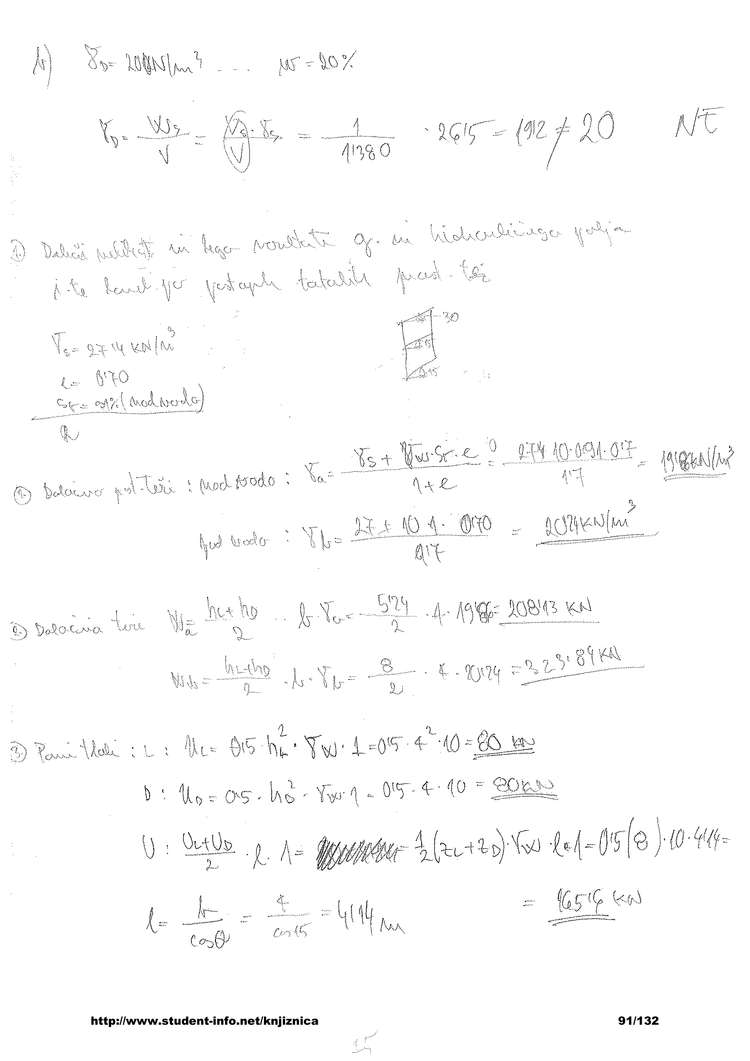 b) γD = 20 kN/m³ ... w = 20%
γD = Ws/V = (Vs/V) · γs = 1/1'380 · 26'5 = 19'2 ≠ 20 NE
1.) Določi velikost in lego rezultante g. in hidravličnega polja
i-te lamele po postopku totalnih prost. tež
γs = 27'4 kN/m³
e = 0'70
Sr = 91% (nad vodo)
30
15
1.) Določimo prost. teži : nad vodo : γa = (γs + γw · Sr · e)/(1+e) = (27'4 10 · 0'91 · 0'7)/1'7 = 19'86 kN/m³
pod vodo : γb = (27 + 10 · 1 · 0'70)/0'17 = 20'24 kN/m³
2.) Določimo teže Wa = (hL + hD)/2 · b · γa = 5'24/2 · 4 · 19'86 = 208'13 kN
Wb = (hL + hD)/2 · b · γb = 8/2 · 4 · 20'24 = 323'84 kN
3.) L : UL = 0'5 · hL² · γw · 1 = 0'5 · 4² · 10 = 80 kN
D : UD = 0'5 · hD² · γw · 1 = 0'5 · 4 · 10 = 80 kN
U : (UL + UD)/2 · l · 1 = = 1/2 (zL + zD) · γw · l · 1 = 0'5 (8) · 10 · 4'14 =
l = b/cosθ = 4/cos15 = 4'14 m = 165'6 kN
http://www.student-info.net/knjiznica 91/132